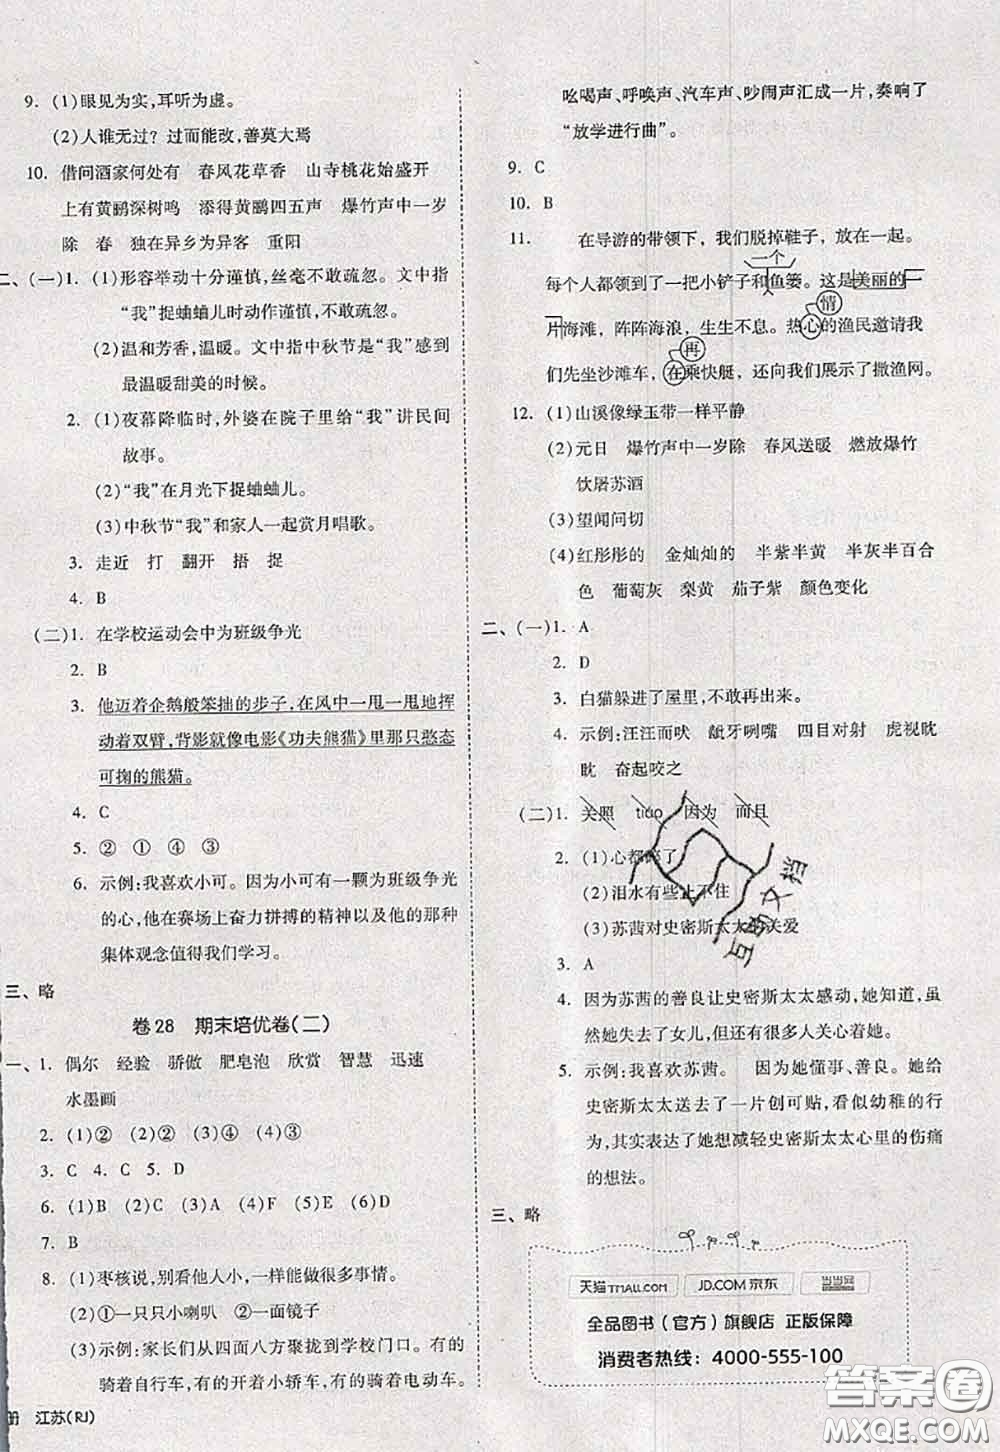 9. (1)眼见为实,耳听为虚。
(2)人谁无过?过而能改,善莫大焉
10. 借问酒家何处有 春风花草香 山寺桃花始盛开
上有黄鹂深树鸣 添得黄鹂四五声 爆竹声中一岁
除 春 独在异乡为异客 重阳
二、(一)1. (1)形容举动十分谨慎,丝毫不敢疏忽。文中指
“我”捉蛐蛐儿时动作谨慎,不敢疏忽。
(2)温和芳香,温暖。文中指中秋节是“我”感到
最温暖甜美的时候。
2. (1)夜幕降临时,外婆在院子里给“我”讲民间
故事。
(2)“我”在月光下捉蛐蛐儿。
(3)中秋节“我”和家人一起赏月唱歌。
3. 走近 打 翻开 捂 捉
4. B
(二)1. 在学校运动会中为班级争光
2. B
3. 他迈着企鹅般笨拙的步子,在风中一甩一甩地挥
动着双臂,背影就像电影《功夫熊猫》里那只憨态
可掬的熊猫。
4. C
5. ② ① ④ ③
6. 示例:我喜欢小可。因为小可有一颗为班级争光
的心,他在赛场上奋力拼搏的精神以及他的这种
集体观念值得我们学习。
三、略
卷28 期末培优卷(二)
一、1. 偶尔 经验 骄傲 肥皂泡 欣赏 智慧 迅速
水墨画
2. (1)② (2)② (3)④ (4)③
3. C 4. C 5. D
6. (1)B (2)C (3)A (4)F (5)E (6)D
7. B
8. (1)枣核说,别看他人小,会干很多事情。
(2)①一只只小喇叭 ②一面镜子
(3)示例:家长们从四面八方聚拢到学校门口。有的
骑着自行车,有的开着小轿车,有的骑着电动车。
册 江苏(RJ)
吆喝声、呼唤声、汽车声、吵闹声汇成一片,奏响了
“放学进行曲”。
9. C
10. B
11. 在导游的带领下,我们脱掉鞋子,放在一起。
一个
每个人都领到了一把小铲子和鱼篓。这是美丽的
情
片海滩,阵阵海浪,生生不息。热心的渔民邀请我
再
们先坐沙滩车,在乘快艇,还向我们展示了撒渔网。
12. (1)山溪像绿玉带一样平静
(2)元日 爆竹声中一岁除 春风送暖 燃放爆竹
饮屠苏酒
(3)望闻问切
(4)红彤彤的 金灿灿的 半紫半黄 半灰半百合
色 葡萄灰 梨黄 茄子紫 颜色变化
二、(一)1. A
2. D
3. 白猫躲进了屋里,不敢再出来。
4. 示例:汪汪而吠 龇牙咧嘴 四目对射 虎视眈
眈 奋起咬之
(二)1. 关照 tiáo 因为 而且
2. (1)心都碎了
(2)泪水有些止不住
(3)苏茜对史密斯太太的关爱
3. A
4. 因为苏茜的善良让史密斯太太感动,她知道,虽
然她失去了女儿,但还有很多人关心着她。
5. 示例:我喜欢苏茜。 因为她懂事、善良。她给
史密斯太太送去了一片创可贴,看似幼稚的行
为,其实表达了她想减轻史密斯太太心里的伤痛
的想法。
三、略
天猫TMALL.COM JD.COM 京东 当当网
全品图书(官方)旗舰店 正版保障
消费者热线:4000-555-100
互助文档
答案圈
MXQE.COM